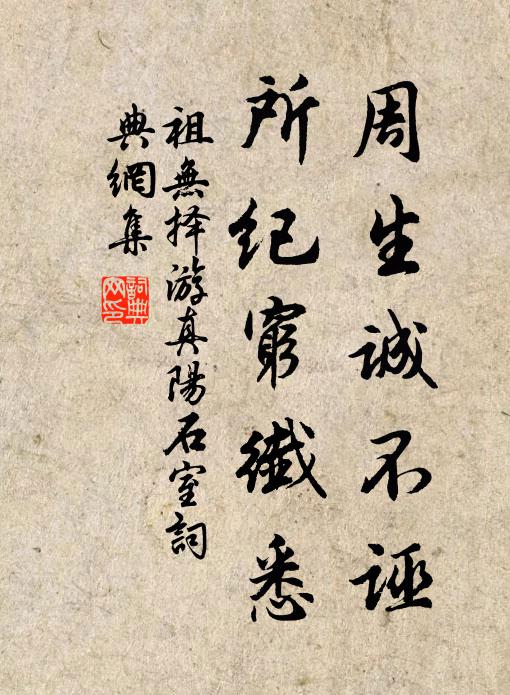 周生誠不誣
所纪窮纖悉
祖無择游真陽石室詞
典網集
詞典網印